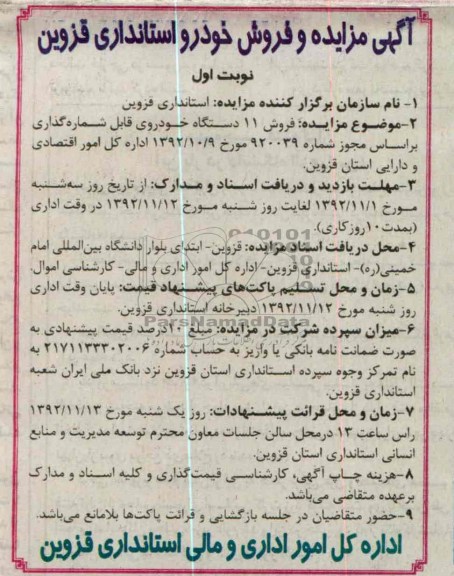 آگهی مزایده و فروش خودرو استانداری قزوین
نوبت اول
۱- نام سازمان برگزار کننده مزایده: استانداری قزوین
۲-موضوع مزایده: فروش ۱۱ دستگاه خودروی قابل شماره‌گذاری
براساس مجوز شماره ۹۲۰۰۳۹ مورخ ۱۳۹۲/۱۰/۹ اداره کل امور اقتصادی
و دارایی استان قزوین.
۳-مهلت بازدید و دریافت اسناد و مدارک: از تاریخ روز سه‌شنبه
مورخ ۱۳۹۲/۱۱/۱ لغایت روز شنبه مورخ ۱۳۹۲/۱۱/۱۲ در وقت اداری
(بمدت ۱۰ روز کاری).
۴-محل دریافت اسناد مزایده: قزوین- ابتدای بلوار دانشگاه بین‌المللی امام
خمینی(ره)- استانداری قزوین- اداره کل امور اداری و مالی- کارشناسی اموال.
۵-زمان و محل تسلیم پاکت‌های پیشنهاد قیمت: پایان وقت اداری
روز شنبه مورخ ۱۳۹۲/۱۱/۱۲ دبیرخانه استانداری قزوین.
ParsNamadData
۶-میزان سپرده شرکت در مزایده: مبلغ ۱۰درصد قیمت پیشنهادی به
صورت ضمانت نامه بانکی یا واریز به حساب شماره ۲۱۷۱۱۳۳۳۰۲۰۰۶ به
نام تمرکز وجوه سپرده استانداری استان قزوین نزد بانک ملی ایران شعبه
استانداری قزوین.
۷-زمان و محل قرائت پیشنهادات: روز یک شنبه مورخ ۱۳۹۲/۱۱/۱۳
راس ساعت ۱۳ درمحل سالن جلسات معاون محترم توسعه مدیریت و منابع
انسانی استانداری استان قزوین.
۸-هزینه چاپ آگهی، کارشناسی قیمت‌گذاری و کلیه اسناد و مدارک
برعهده متقاضی می‌باشد.
۹-حضور متقاضیان در جلسه بازگشایی و قرائت پاکت‌ها بلامانع می‌باشد.
اداره کل امور اداری و مالی استانداری قزوین